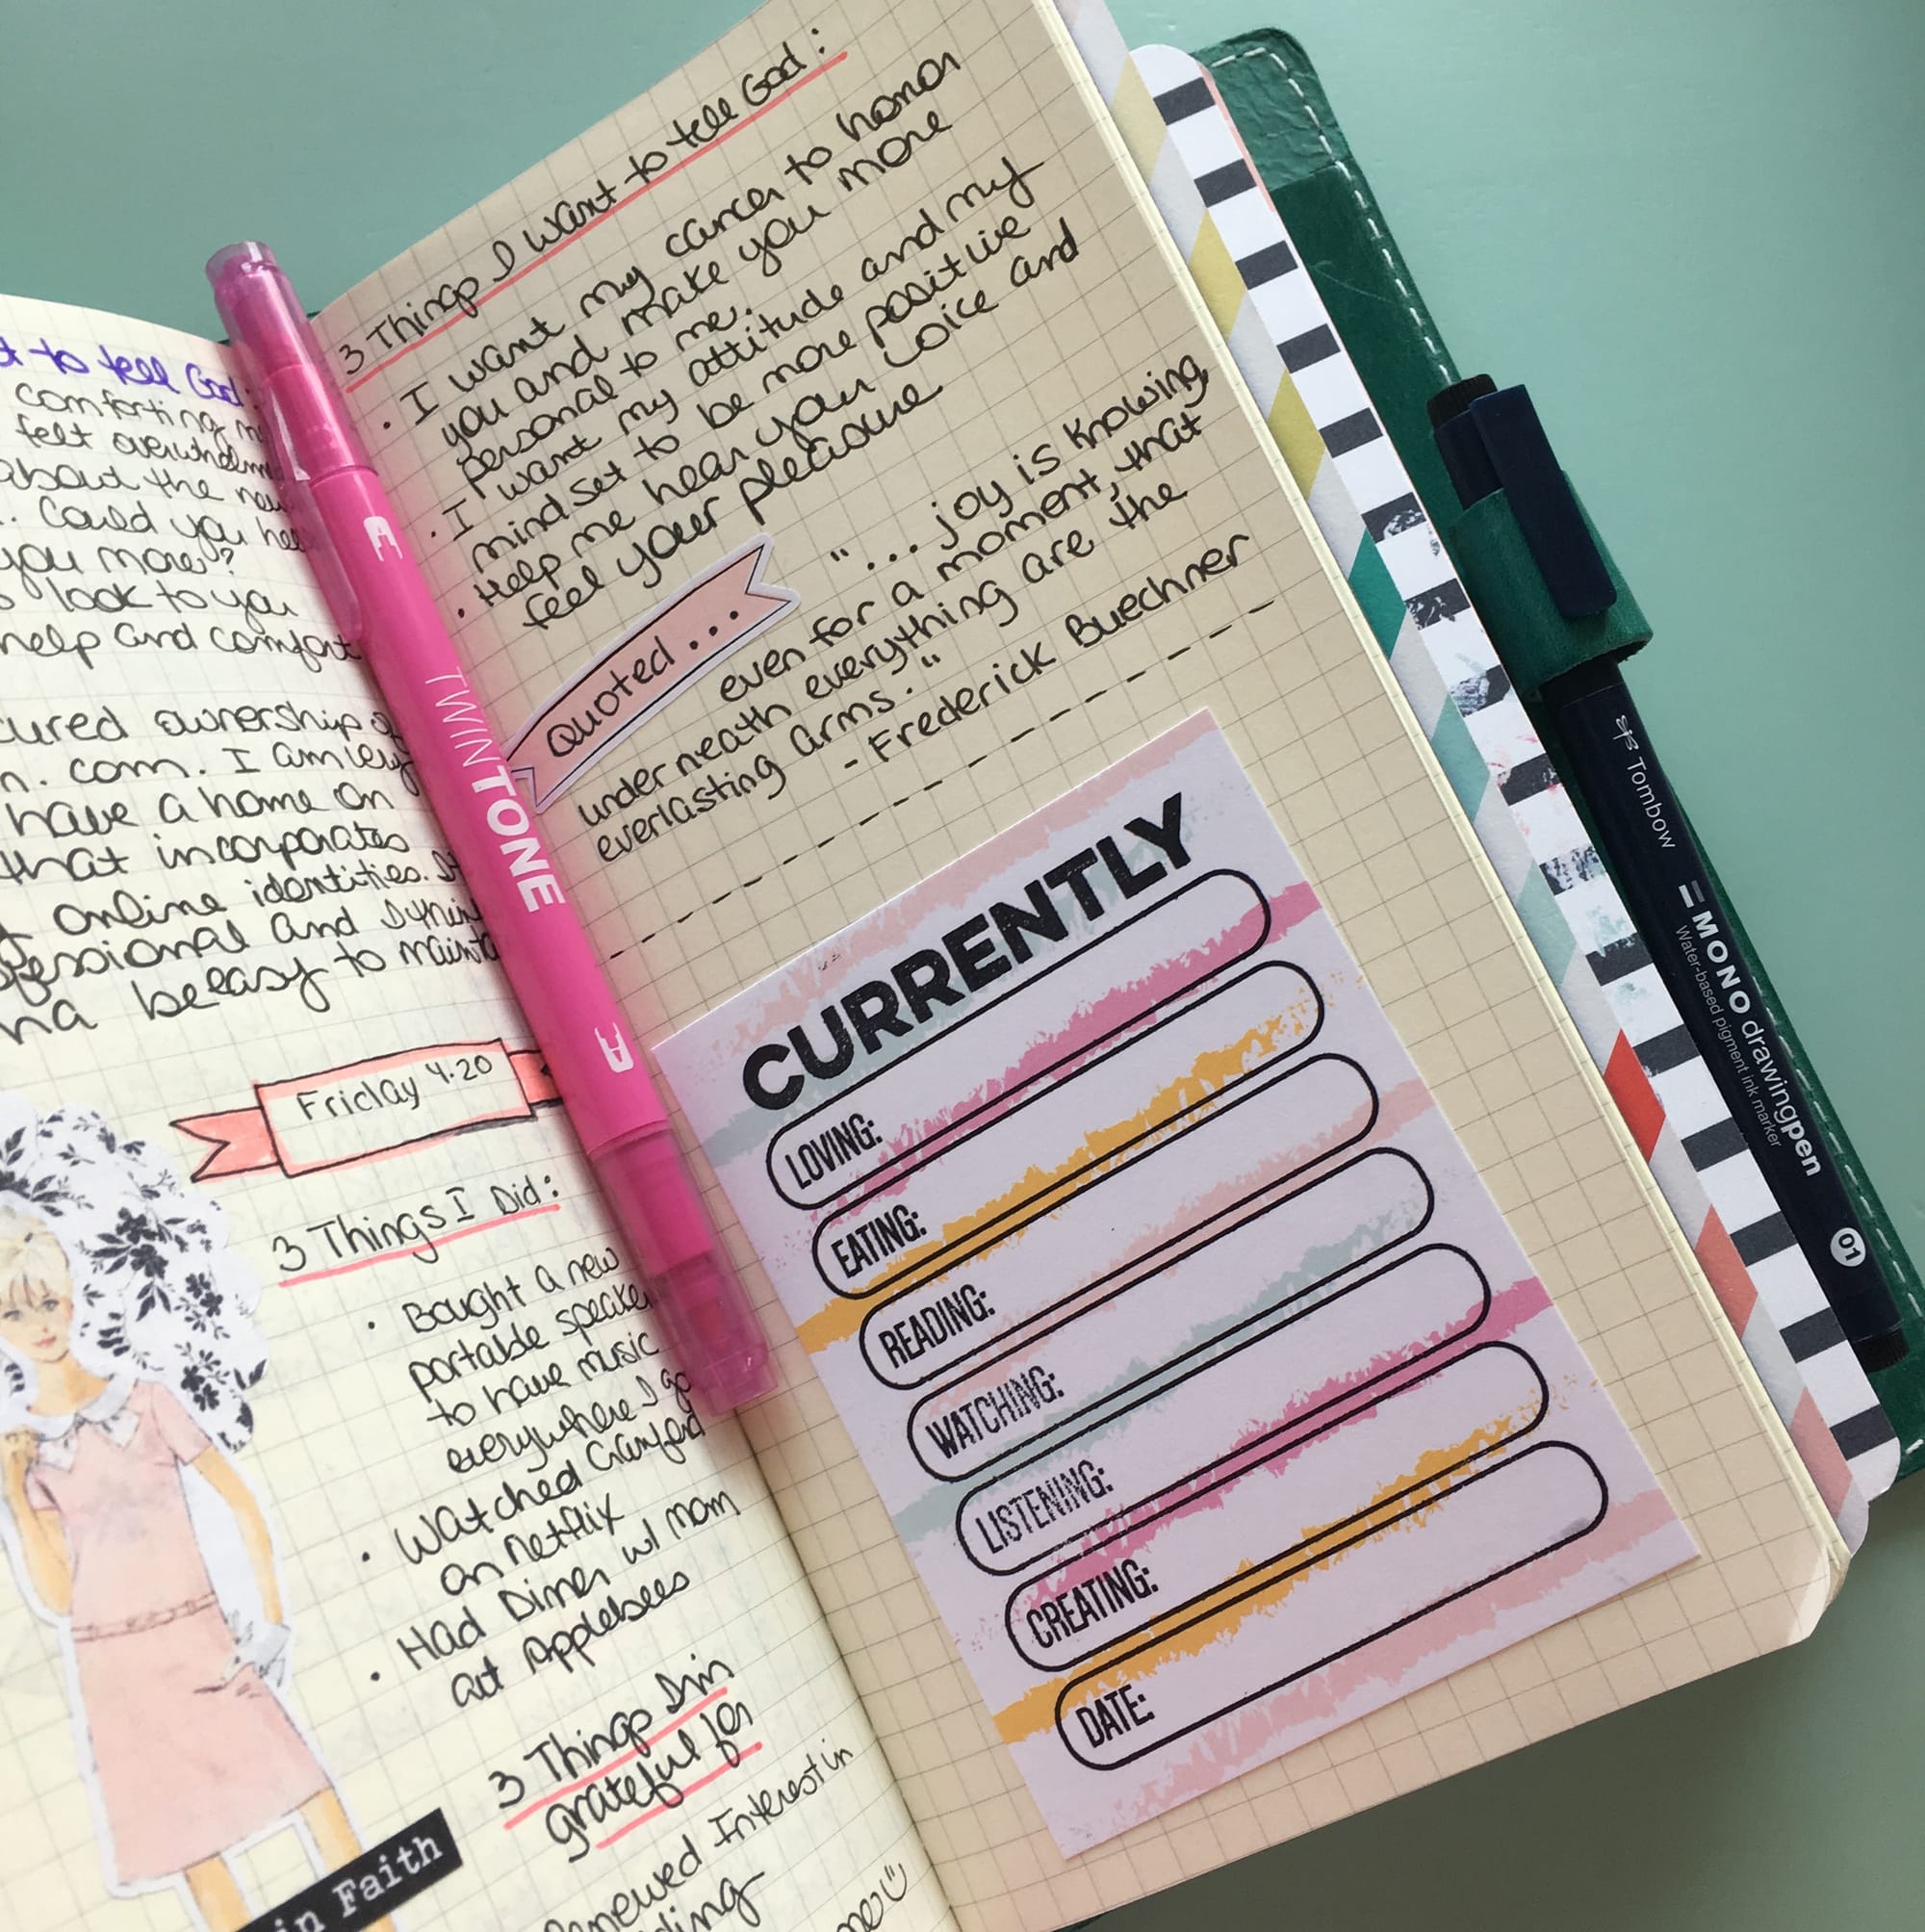 t to tell God:
comforting my
felt overwhelm
about the new
Could you hel
you more?
look to you
help and comfort
cured ownership of
n.com. I am very
have a home on
that incorporates
online identities. It
fessional and I thin
na be easy to mainta
Friday 4.20
3 Things I Did:
• Bought a new
portable speaker
to have music
everywhere I go
• Watched Cranford
on Netflix
• Had Diner w/ mom
at Applebees
3 Things I'm
grateful for
Renewed Interest in
ding
me
in Faith
TWINTONE
3 Things I want to tell God:
• I want my career to honor
you and make you more
personal to me.
• I want my attitude and my
mindset to be more positive
• Help me hear your voice and
feel your pleasure
Quoted...
"...joy is knowing,
even for a moment, that
underneath everything are the
everlasting arms."
- Frederick Buechner
CURRENTLY
LOVING:
EATING:
READING:
WATCHING:
LISTENING:
CREATING:
DATE:
Tombow
MONO drawing pen
Water-based pigment ink marker
01